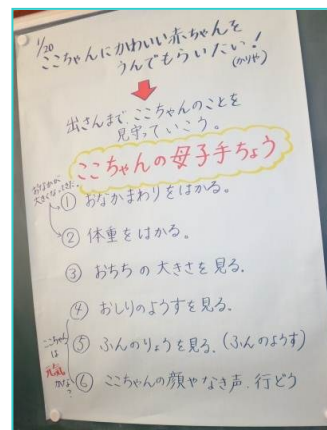 1/20
ここちゃんにかわいい赤ちゃんを
うんでもらいたい!
(かりや)
出さんまで、ここちゃんのことを
見守っていこう。
ここちゃんの母子手ちょう
おなかが
大きくなってきた。
① おなかまわりをはかる。
② 体重をはかる。
③ おちちの大きさを見る。
④ おしりのようすを見る。
⑤ ふんのりょうを見る。(ふんのようす)
⑥ ここちゃんの顔やなき声、行どう
ここちゃん
は
元気
かな?